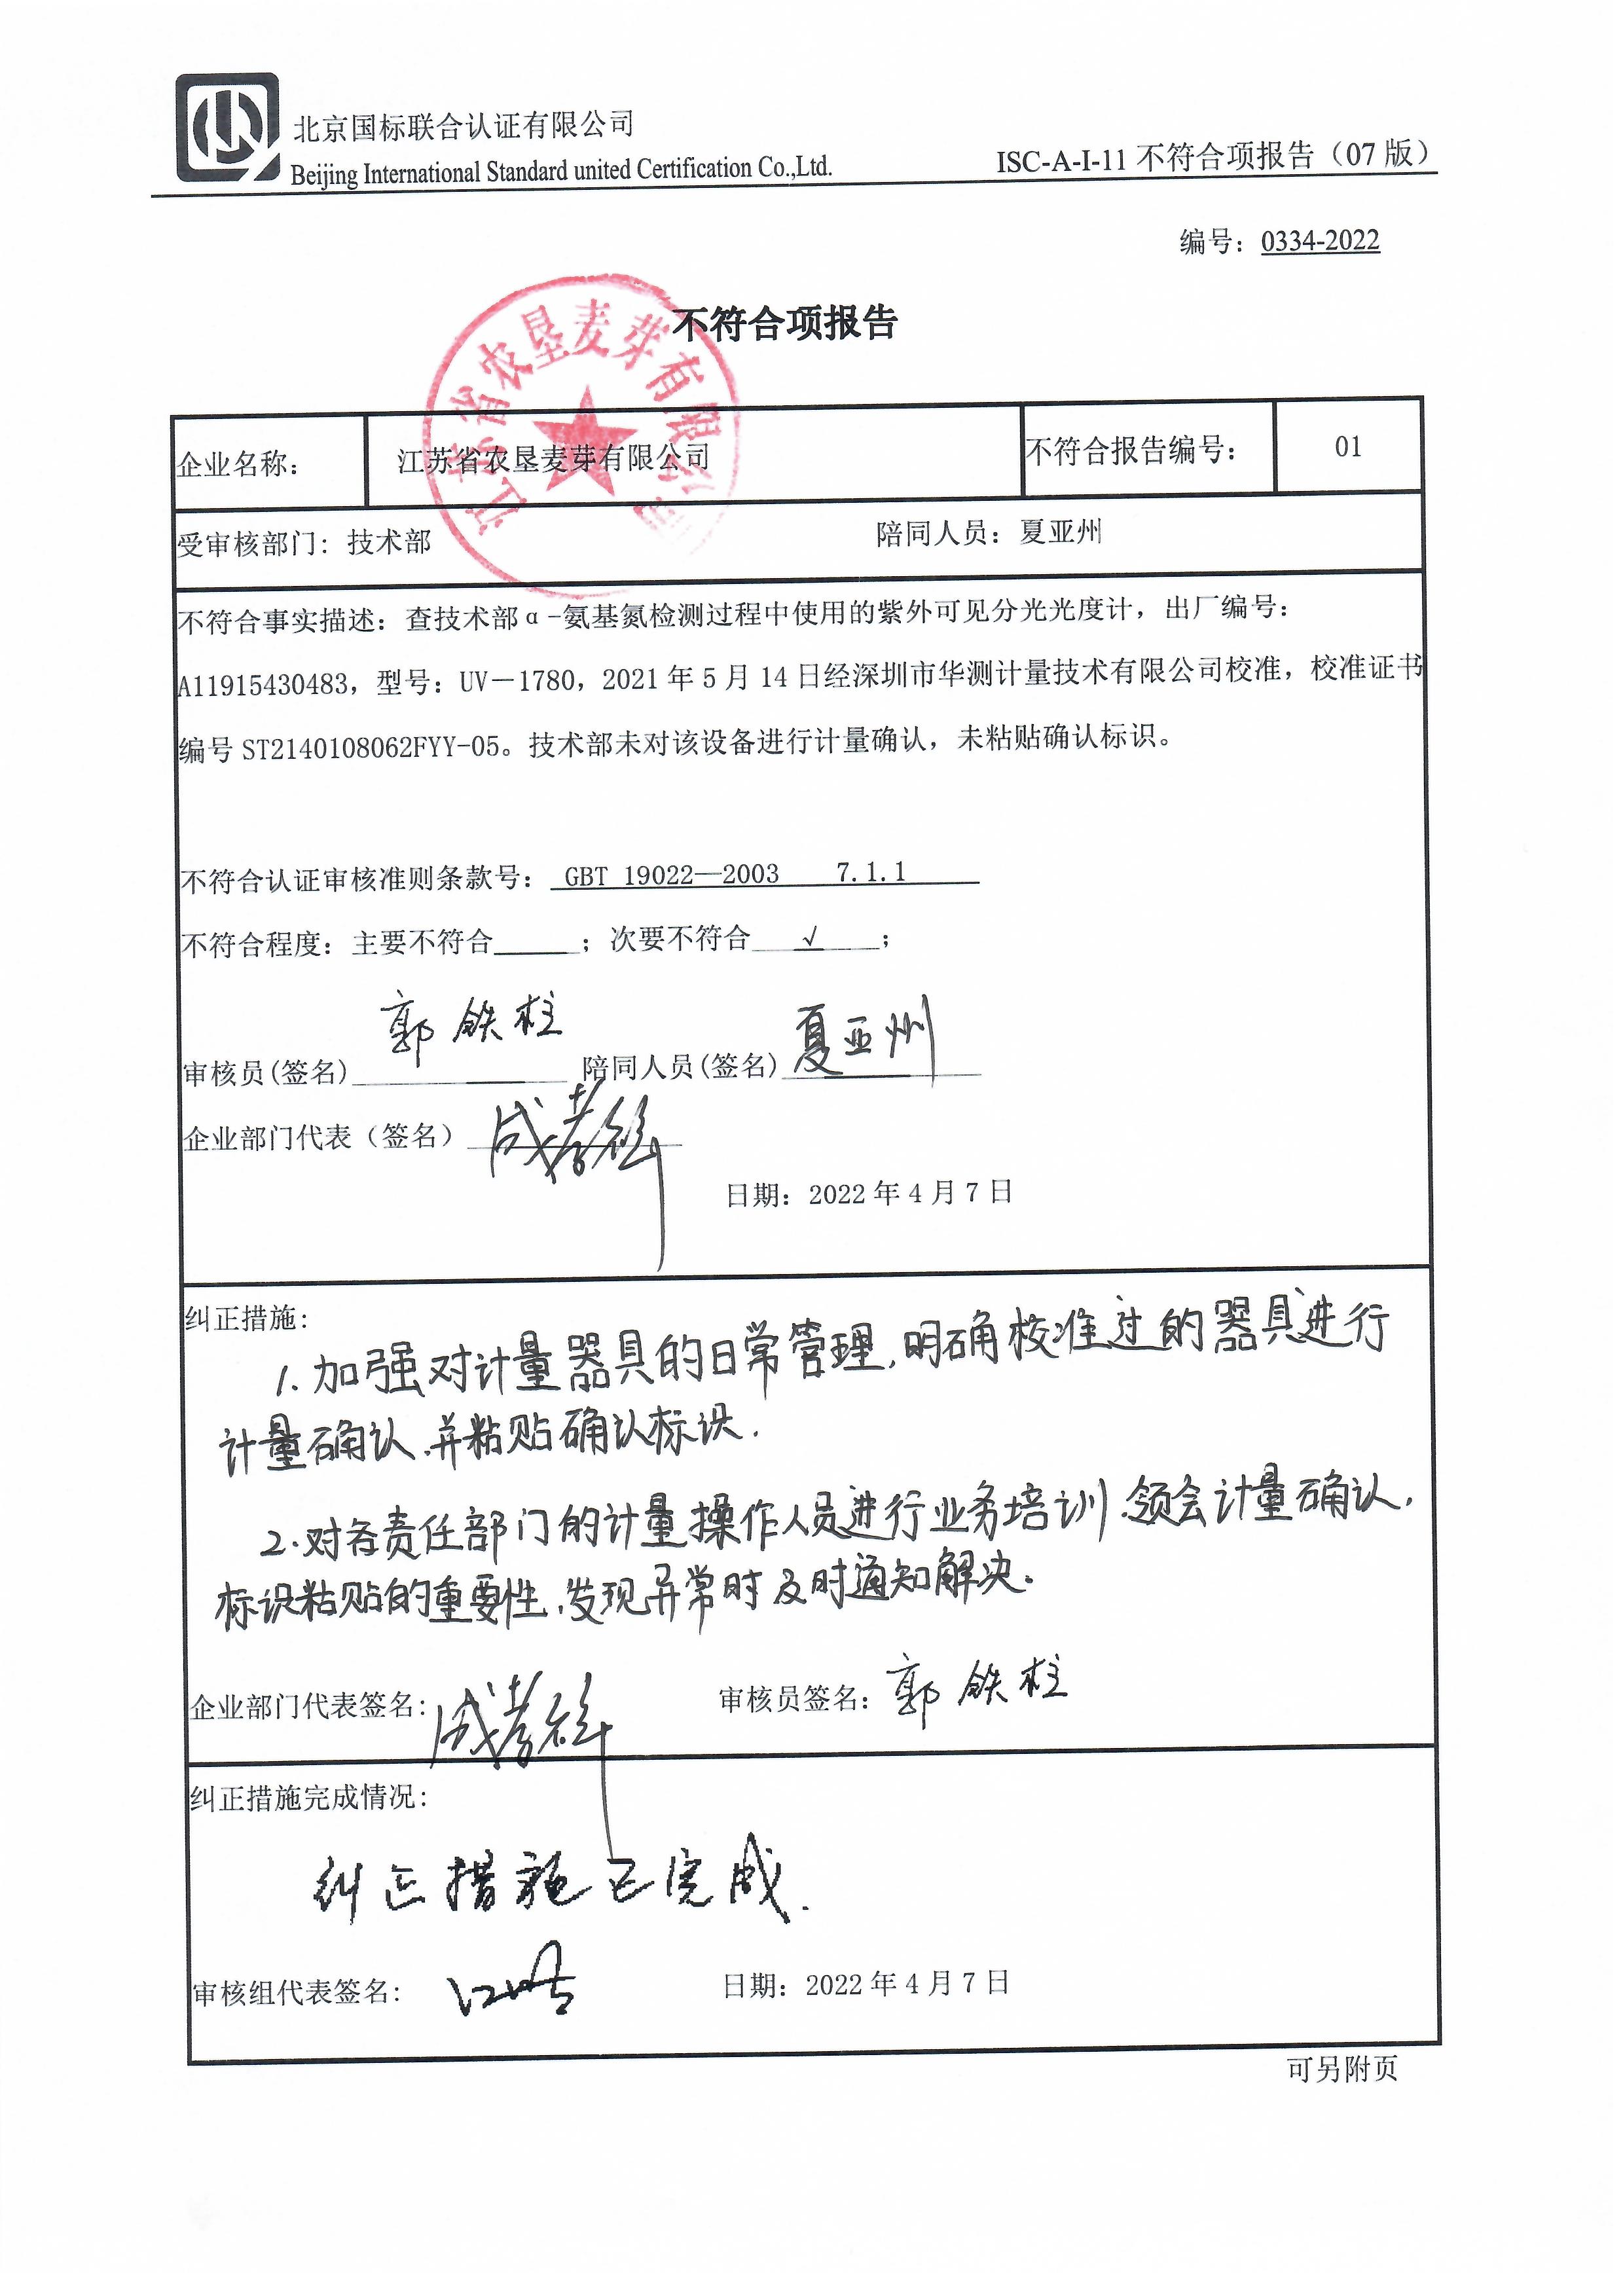 北京国标联合认证有限公司
Beijing International Standard united Certification Co.,Ltd.
ISC-A-I-11 不符合项报告（07 版）
编号：0334-2022
不符合项报告
江苏省农垦麦芽有限公司
企业名称：
江苏省农垦麦芽有限公司
不符合报告编号：
01
受审核部门：技术部
陪同人员：夏亚州
不符合事实描述：查技术部α-氨基氮检测过程中使用的紫外可见分光光度计，出厂编号：
A11915430483，型号：UV－1780，2021 年 5 月 14 日经深圳市华测计量技术有限公司校准，校准证书
编号 ST2140108062FYY-05。技术部未对该设备进行计量确认，未粘贴确认标识。
不符合认证审核准则条款号： GBT 19022—2003 7.1.1
不符合程度：主要不符合 ；次要不符合 √ ；
审核员(签名) 郭铁柱 陪同人员(签名) 夏亚州
企业部门代表（签名）
日期：2022 年 4 月 7 日
纠正措施：
1.加强对计量器具的日常管理,明确校准过的器具进行
计量确认,并粘贴确认标识.
2.对各责任部门的计量操作人员进行业务培训,领会计量确认,
标识粘贴的重要性,发现异常时及时通知解决.
企业部门代表签名:
审核员签名：郭铁柱
纠正措施完成情况:
纠正措施已完成.
审核组代表签名:
日期：2022 年 4 月 7 日
可另附页